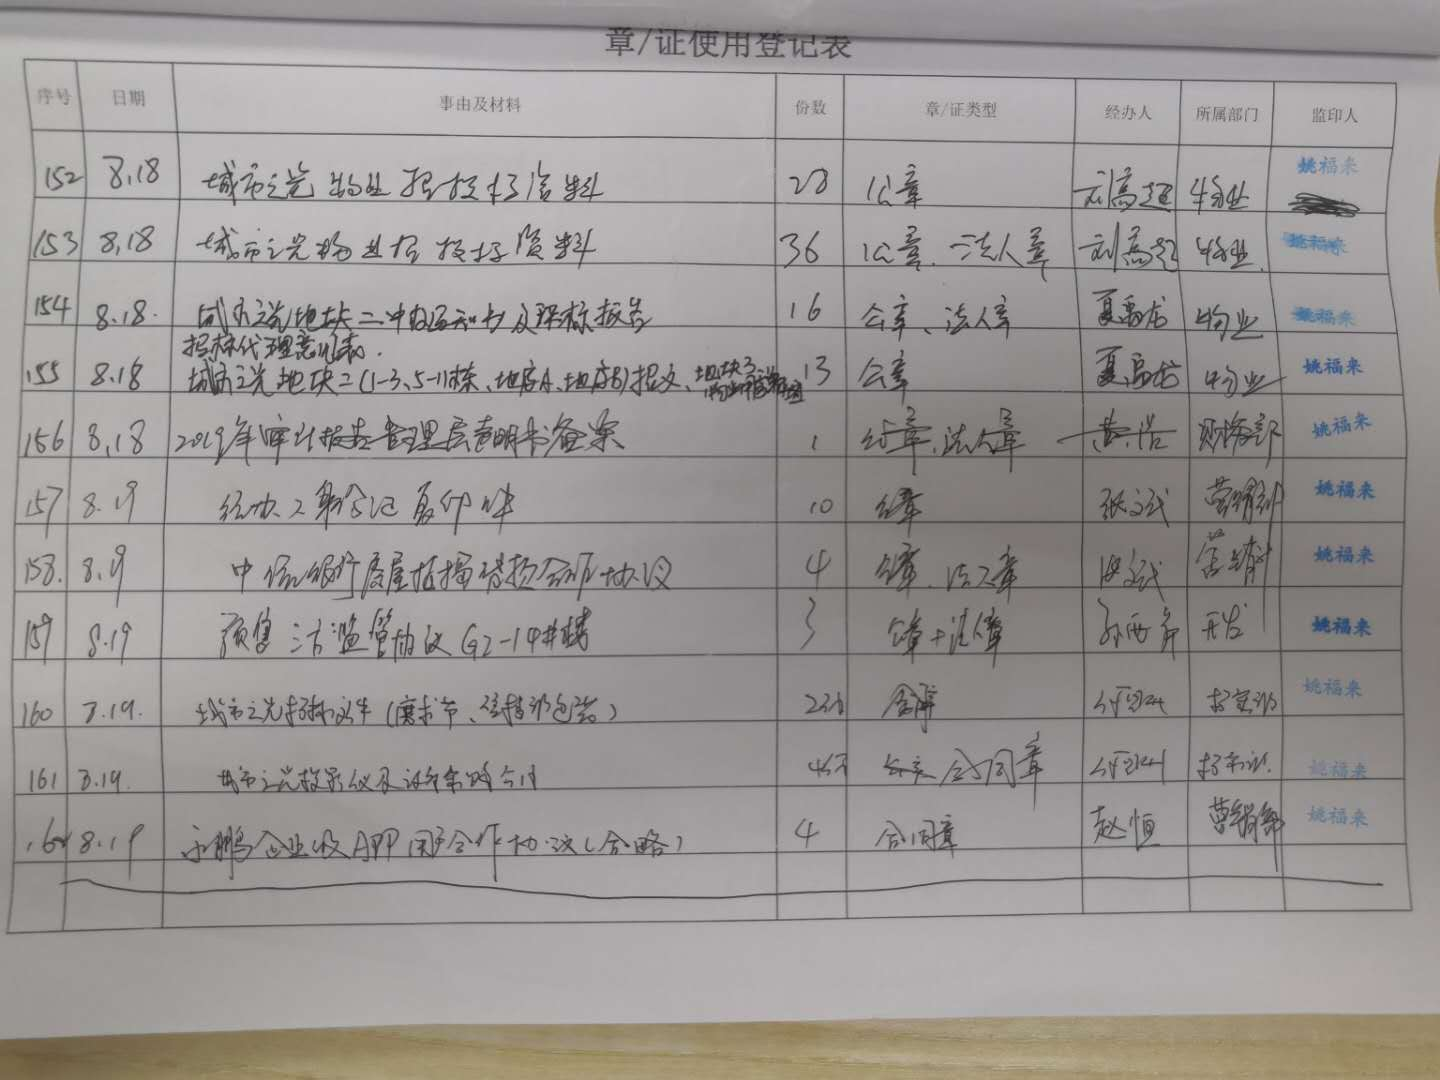 章/证使用登记表
序号 日期 事由及材料 份数 章/证类型 经办人 所属部门 监印人
152 8.18 城市之光物业招投标资料 28 公章 刘高超 物业 姚福来
153 8.18 城市之光物业招投标资料 36 公章、法人章 刘高超 物业 姚福来
154 8.18. 城市之光地块二中标通知书及评标报告 16 公章、法人章 夏 物业 姚福来
招标代理意见表.
155 8.18 城市之光地块二(1-3、5-11栋、地库A、地库B)招文、地块3 13 公章 夏 物业 姚福来
156 8.18 2019年审计报告管理层声明书备案 1 公章、法人章 黄浩 财务部 姚福来
157 8.19 经办人身份证复印件 10 公章 张文斌 营销部 姚福来
158. 8.19 中信银行房屋按揭贷款合作协议 4 公章、法人章 张文斌 营销部 姚福来
159 8.19 预售三方监管协议G2-14#楼 3 公章+法人章 孙 开发 姚福来
160 8.19. 城市之光招标文件( 姚福来
161 8.19. 城市之光 合同章 姚福来
162 8.19 企业版APP 合作协议(合略) 4 合同章 赵恒 营销部 姚福来